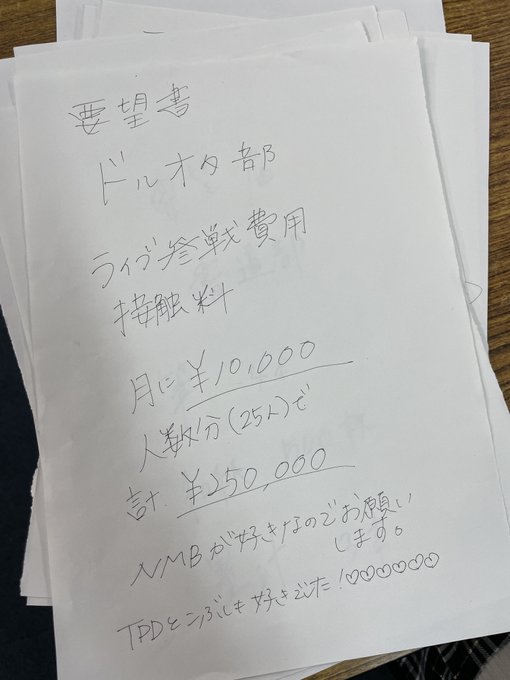 要望書
ドルオタ部
ライブ参戦費用
接触料
月に ¥10,000
人数分(25人)で
計 ¥250,000
NMBが好きなのでお願い
します。
TPDとこぶしも好きでした!♡♡♡♡♡♡